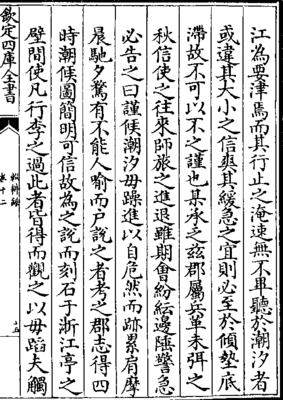 江為要津焉而其行止之淹速無不畢聽於潮汐者
或違其大小之信爽其緩急之宜則必至於傾墊底
滯故不可以不之謹也某承乏兹郡屬兵革未弭之
秋信使之往來師旅之進退雖期會紛紜邊陲警急
必告之曰謹候潮汐毋躁進以自危然而跡累肩摩
晨馳夕騖有不能人喻而户説之者考之郡志得四
時潮候圖簡明可信故為之説而刻石于浙江亭之
壁間使凡行李之過此者皆得而觀之以毋蹈夫觸
欽定四庫全書
卷十二
十五